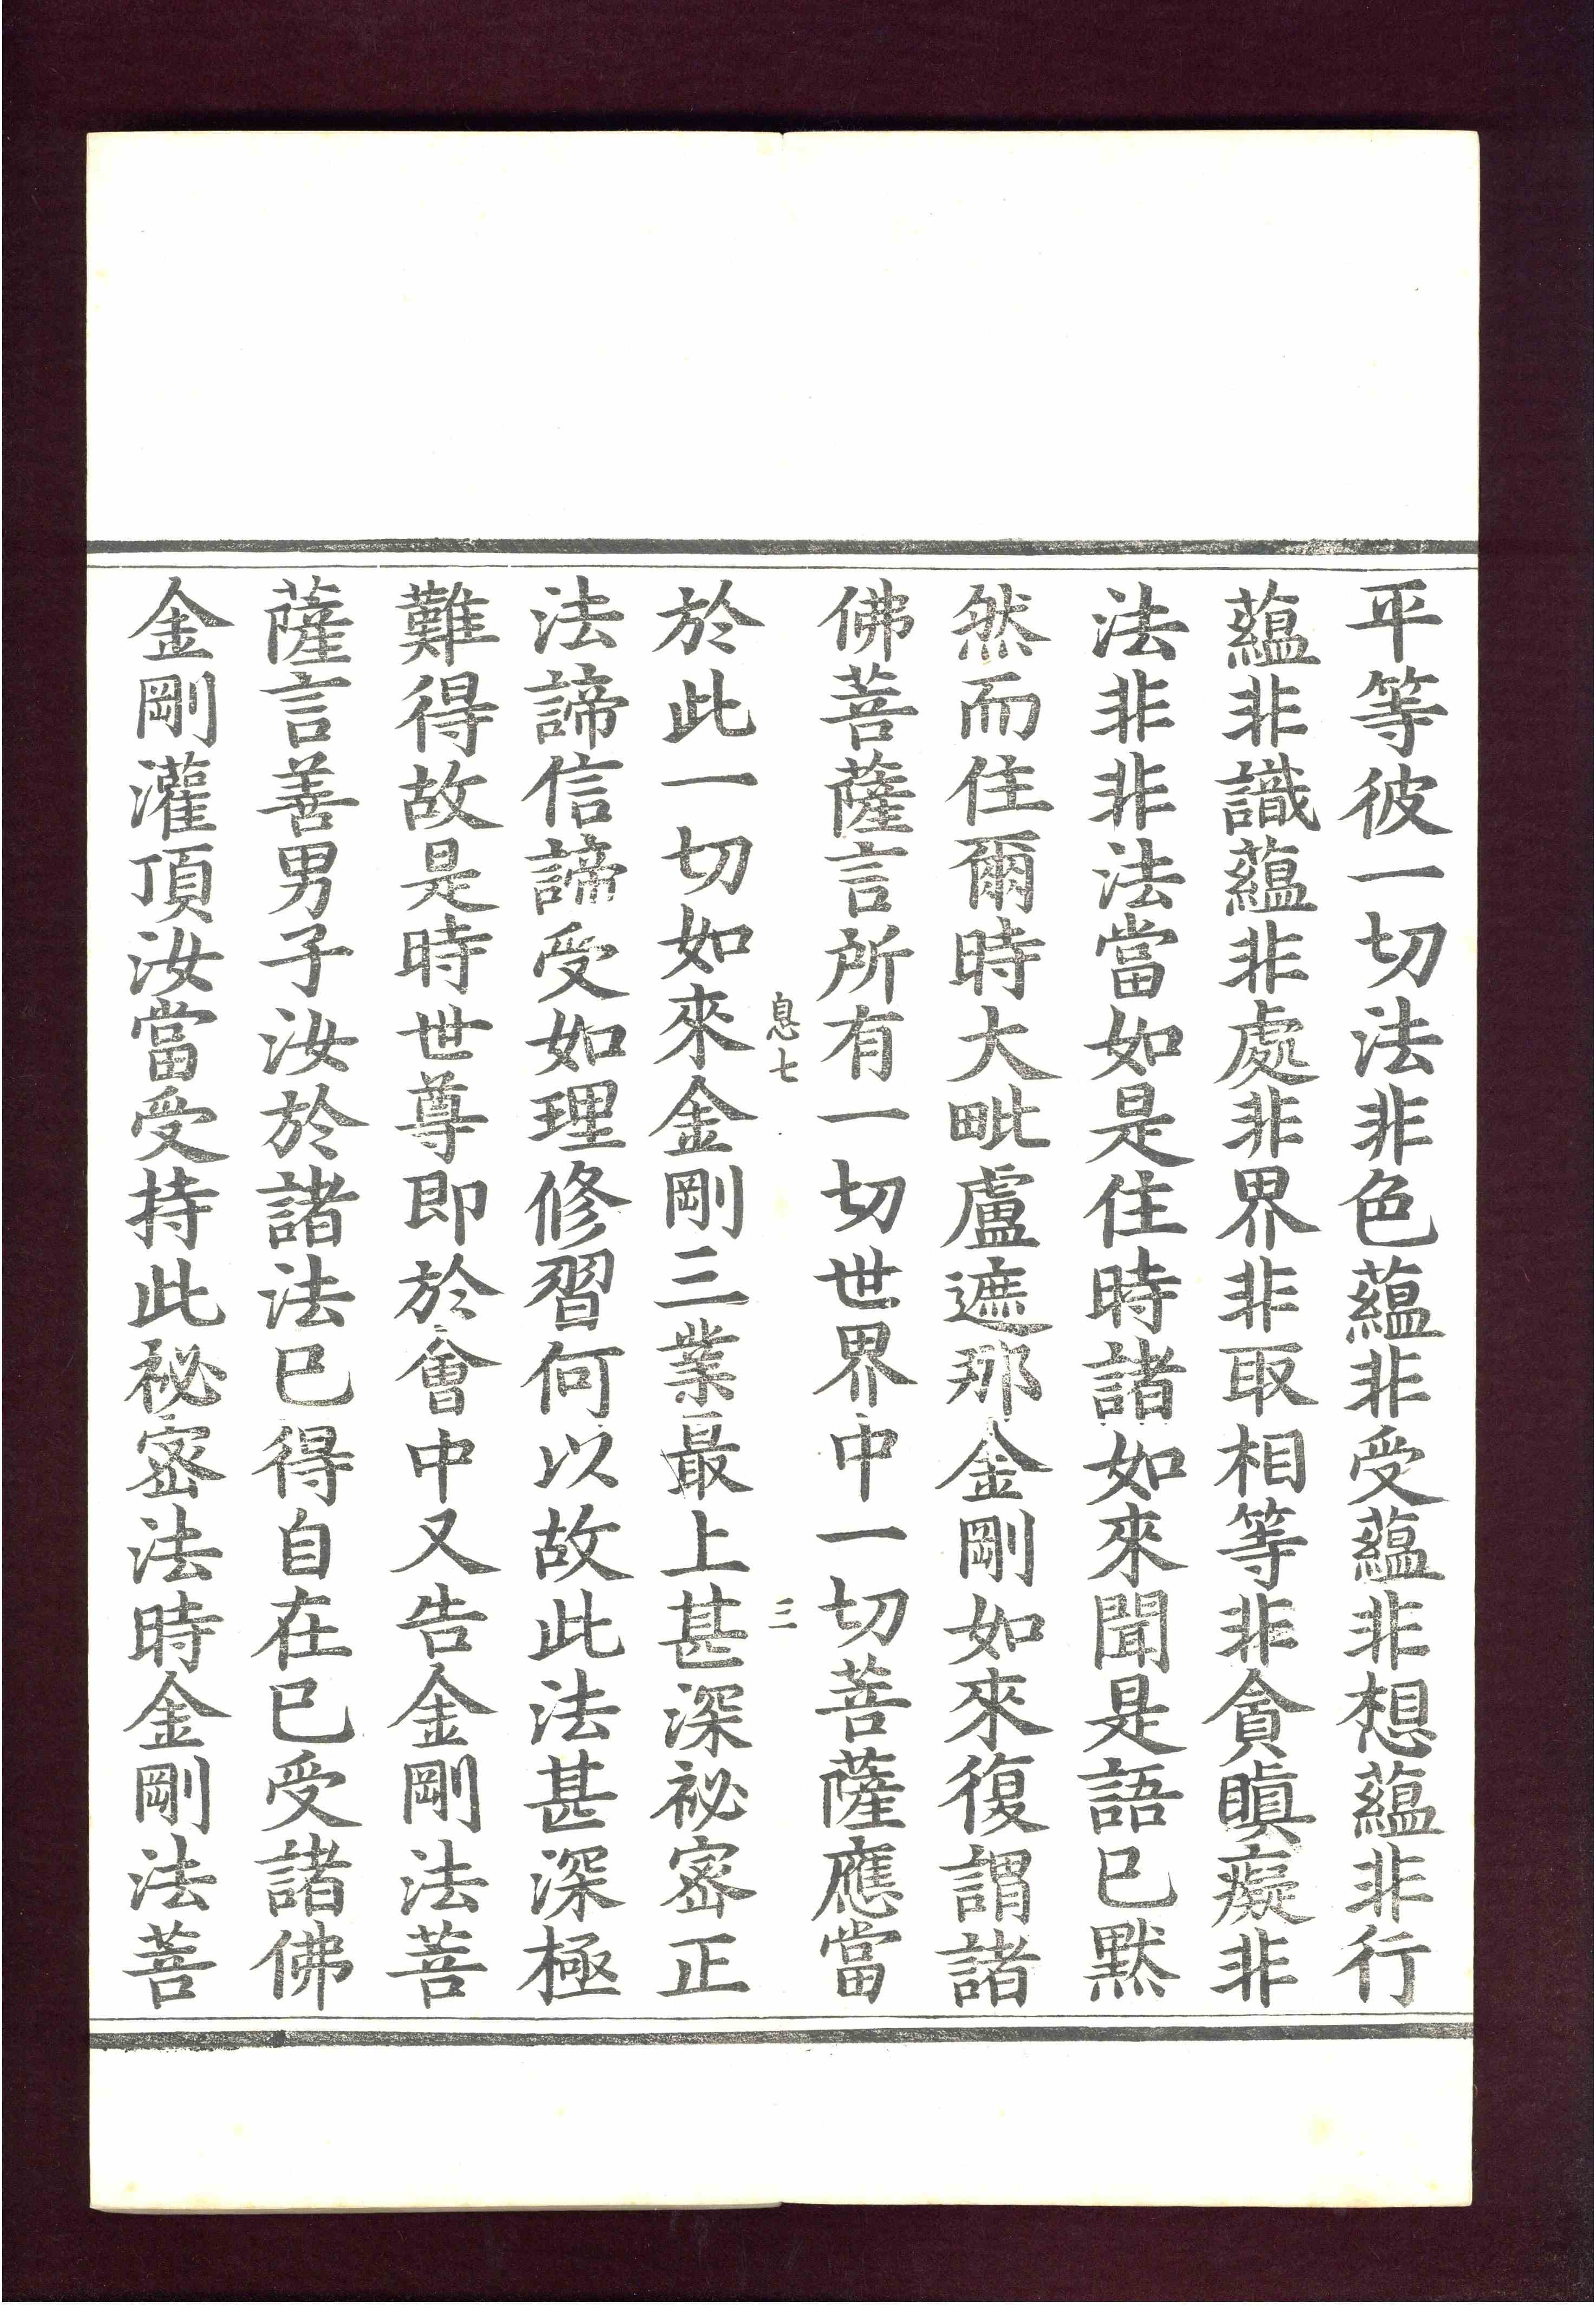 平等彼一切法非色蘊非受蘊非想蘊非行
蘊非識蘊非處非界非取相等非貪瞋癡非
法非非法當如是住時諸如來聞是語已默
然而住爾時大毗盧遮那金剛如來復謂諸
佛菩薩言所有一切世界中一切菩薩應當
息七 三
於此一切如來金剛三業最上甚深祕密正
法諦信諦受如理修習何以故此法甚深極
難得故是時世尊即於會中又告金剛法菩
薩言善男子汝於諸法已得自在已受諸佛
金剛灌頂汝當受持此祕密法時金剛法菩